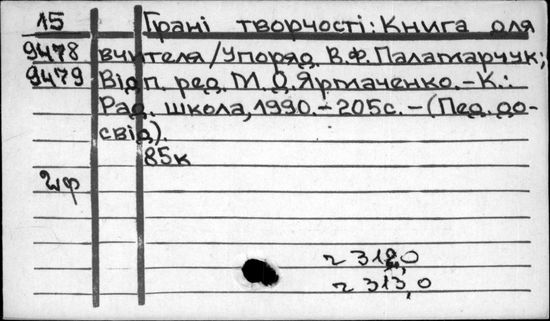 15 Грані творчості: Книга для
9478 вчителя/Упоряд. В.Ф. Паламарчук;
9479 Відп. ред. М.О. Ярмаченко.-К.:
Рад. школа, 1990.-205с.-(Пед. до-
свід).
85к
ч 3
ч 313,0